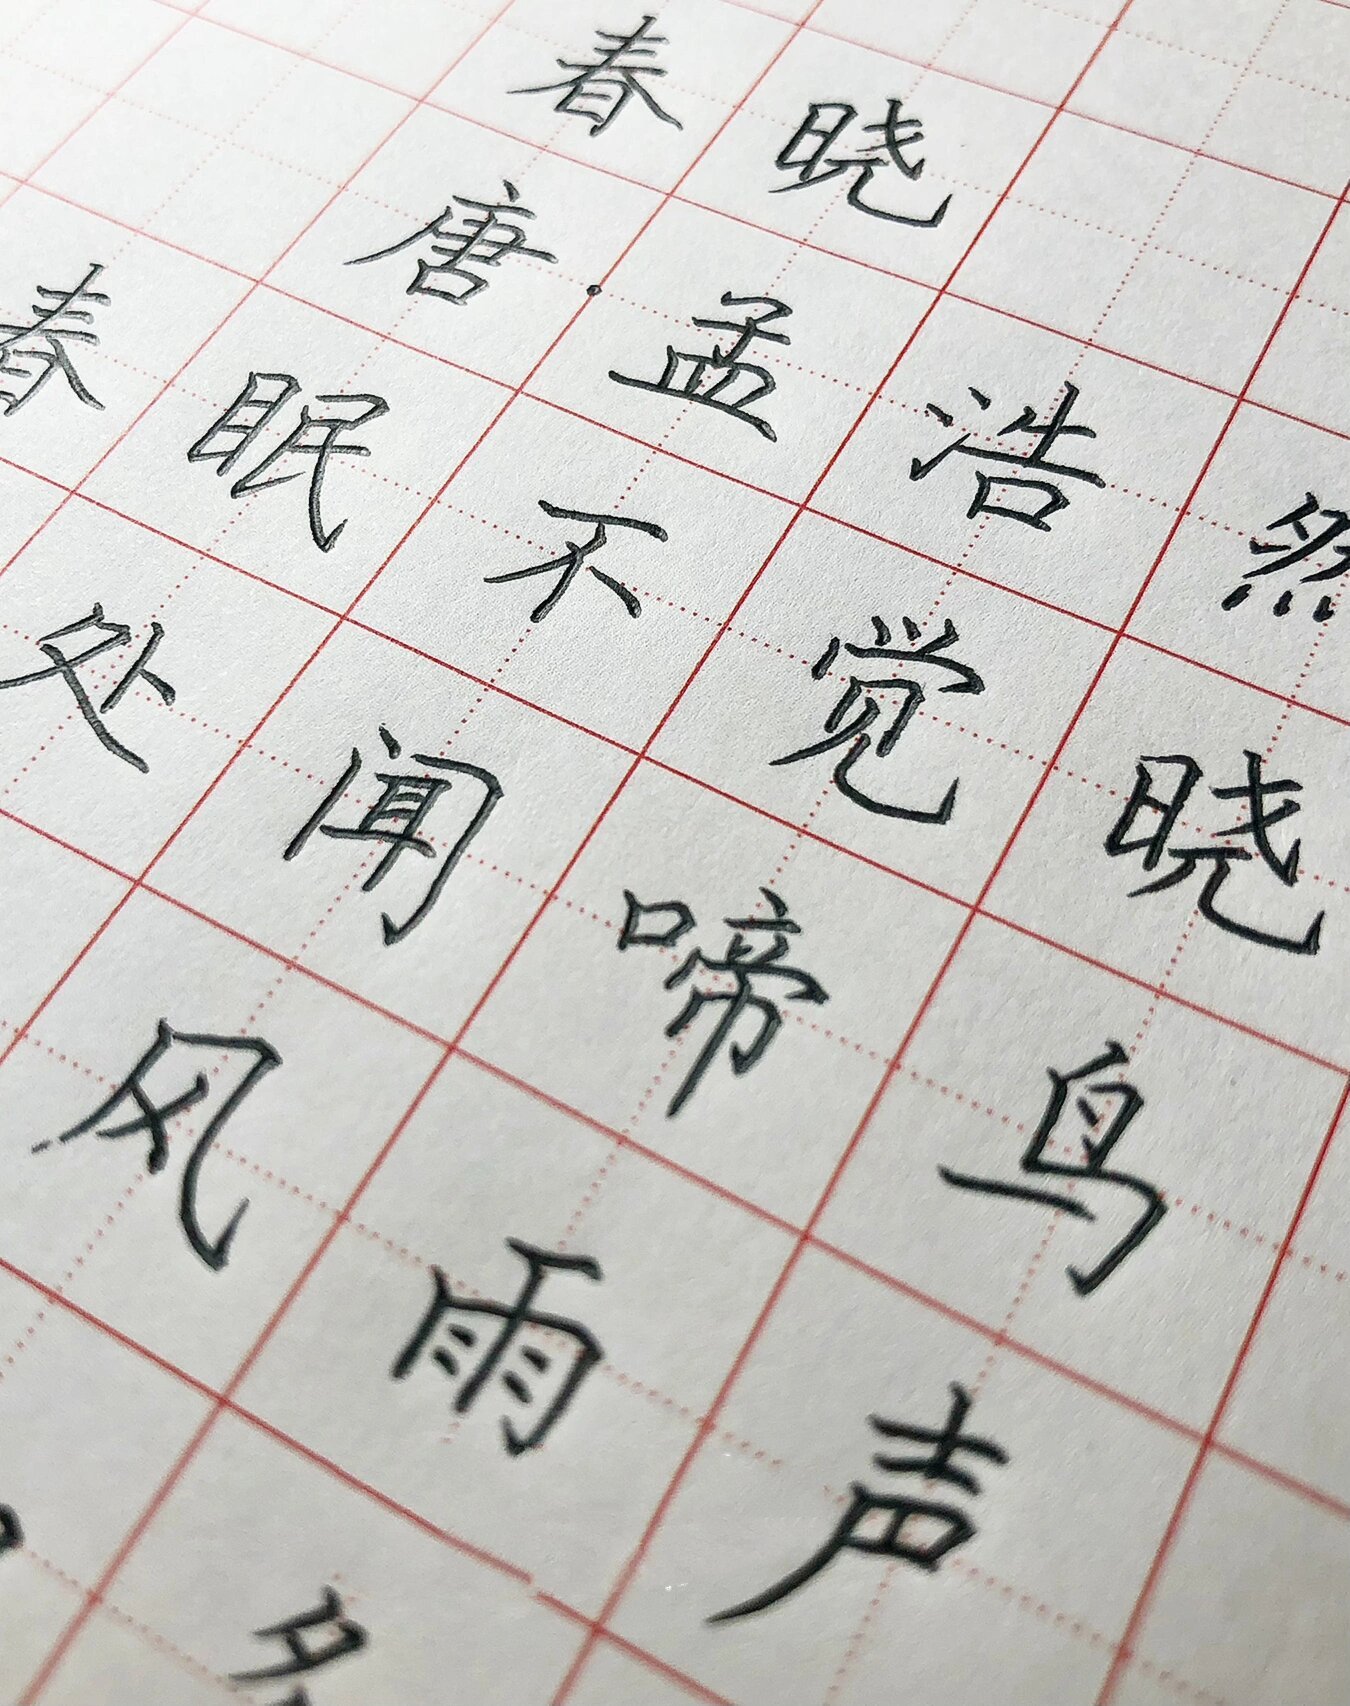 春晓
唐·孟浩然
春眠不觉晓
处闻啼鸟
风雨声
多